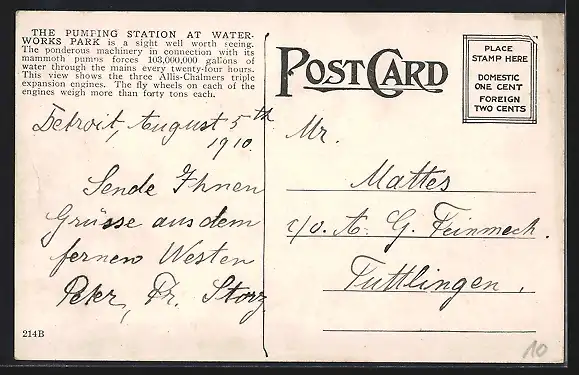 THE PUMPING STATION AT WATER-
WORKS PARK is a sight well worth seeing.
The ponderous machinery in connection with its
mammoth pumps forces 103,000,000 gallons of
water through the mains every twenty-four hours.
This view shows the three Allis-Chalmers triple
expansion engines. The fly wheels on each of the
engines weigh more than forty tons each.
Detroit, August 5th
1910.
Sende Ihnen
Grüsse aus dem
fernen Westen
Peter, Fr. Storz
214B
POST CARD
PLACE
STAMP HERE
DOMESTIC
ONE CENT
FOREIGN
TWO CENTS
Mr.
Mattes
c/o. A. G. Feinmech.
Tuttlingen.
10